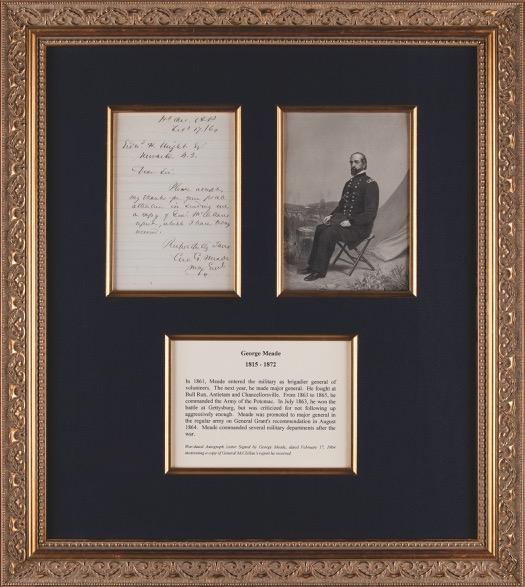 Dear Sir
Please accept
my thanks for your polite
attention in sending me
a copy of Genl McClellan's
report, which I have today
received.
Respectfully Yours
Geo. G. Meade
Maj. Genl
George Meade
1815 - 1872
In 1861, Meade entered the military as brigadier general of
volunteers. The next year, he made major general. He fought at
Bull Run, Antietam and Chancellorsville. From 1863 to 1865, he
commanded the Army of the Potomac. In July 1863, he won the
battle at Gettysburg, but was criticized for not following up
aggressively enough. Meade was promoted to major general in
the regular army on General Grant's recommendation in August
1864. Meade commanded several military departments after the
war.
War-dated Autograph Letter Signed by George Meade, dated February 17, 1864
mentioning a copy of General McClellan's report he received.